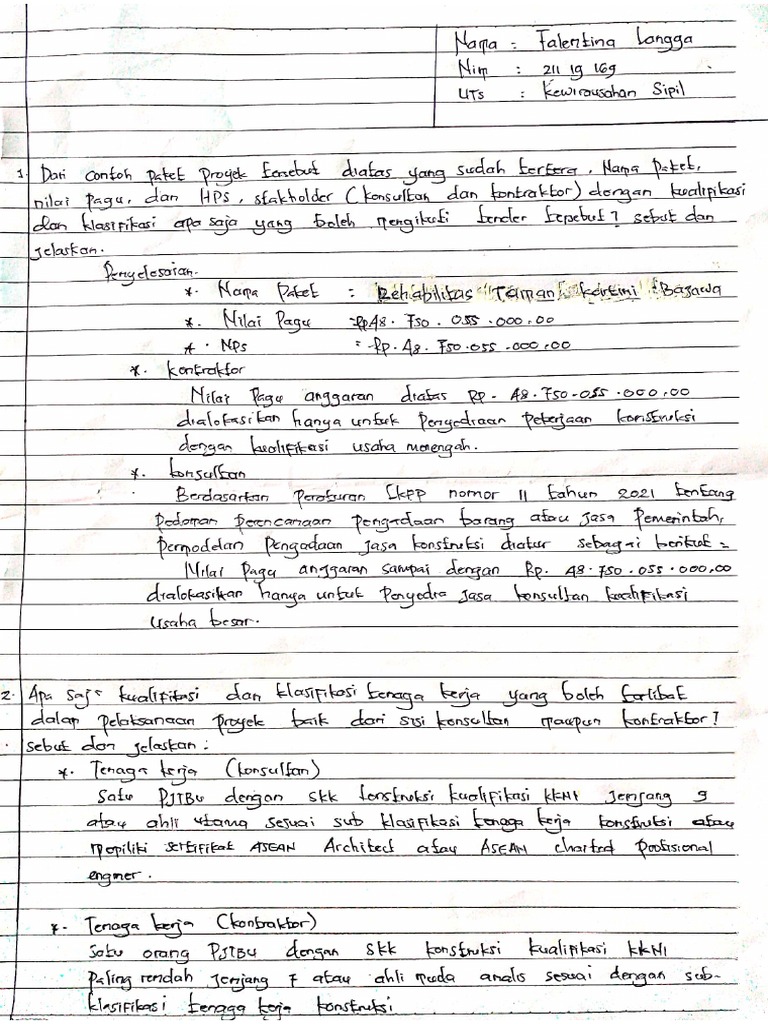 Nama : Falentina Langga
Nim : 211 19 169
UTS : Kewirausahan Sipil
1. Dari contoh paket proyek tersebut diatas yang sudah tertera, Nama paket,
nilai pagu, dan HPS, stakholder (konsultan dan kontraktor) dengan kualifikasi
dan klasifikasi apa saja yang boleh mengikuti tender tersebut? sebut dan
jelaskan.
Penyelesaian.
*. Nama Paket : Rehabilitas Taman Kartini Bajawa
*. Nilai Pagu : Rp 48. 750. 055.000.00
*. NPS : Rp. 48.750.055.000.00
*. Kontraktor
Nilai Pagu anggaran diatas Rp. 48.750.055.000.00
dialokasikan hanya untuk Penyediaan Pekerjaan konstruksi
dengan kualifikasi usaha menengah.
*. Konsultan
Berdasarkan Peraturan LKPP nomor 11 tahun 2021 tentang
Pedoman Perencanaan Pengadaan barang atau Jasa Pemerintah,
Permodelan Pengadaan Jasa konstruksi diatur sebagai berikut :
Nilai Pagu anggaran sampai dengan Rp. 48.750.055.000,00
dialokasikan hanya untuk Penyedia Jasa konsultan kualifikasi
usaha besar.
2. Apa saja kualifikasi dan klasifikasi tenaga kerja yang boleh terlibat
dalam pelaksanaan proyek baik dari sisi konsultan maupun kontraktor?
sebut dan jelaskan :
*. Tenaga kerja (konsultan)
Satu PJTBU dengan SKK konstruksi kualifikasi KKNI Jenjang 9
atau ahli utama sesuai sub klasifikasi tenaga kerja konstruksi atau
memiliki sertifikat ASEAN Architect atau ASEAN charted Profisional
enginer.
*. Tenaga kerja (kontraktor)
Satu orang PJTBU dengan SKK konstruksi kualifikasi KKNI
Paling rendah Jenjang 7 atau ahli muda analis sesuai dengan sub-
klasifikasi tenaga kerja konstruksi